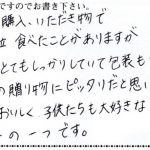 ですのでお書き下さい。
購入、いただき物で
食べたことがありますが
とてもしっかりしていて包装も
の贈り物にピッタリだと思い
おいしく、子供たちも大好きな
の一つです。